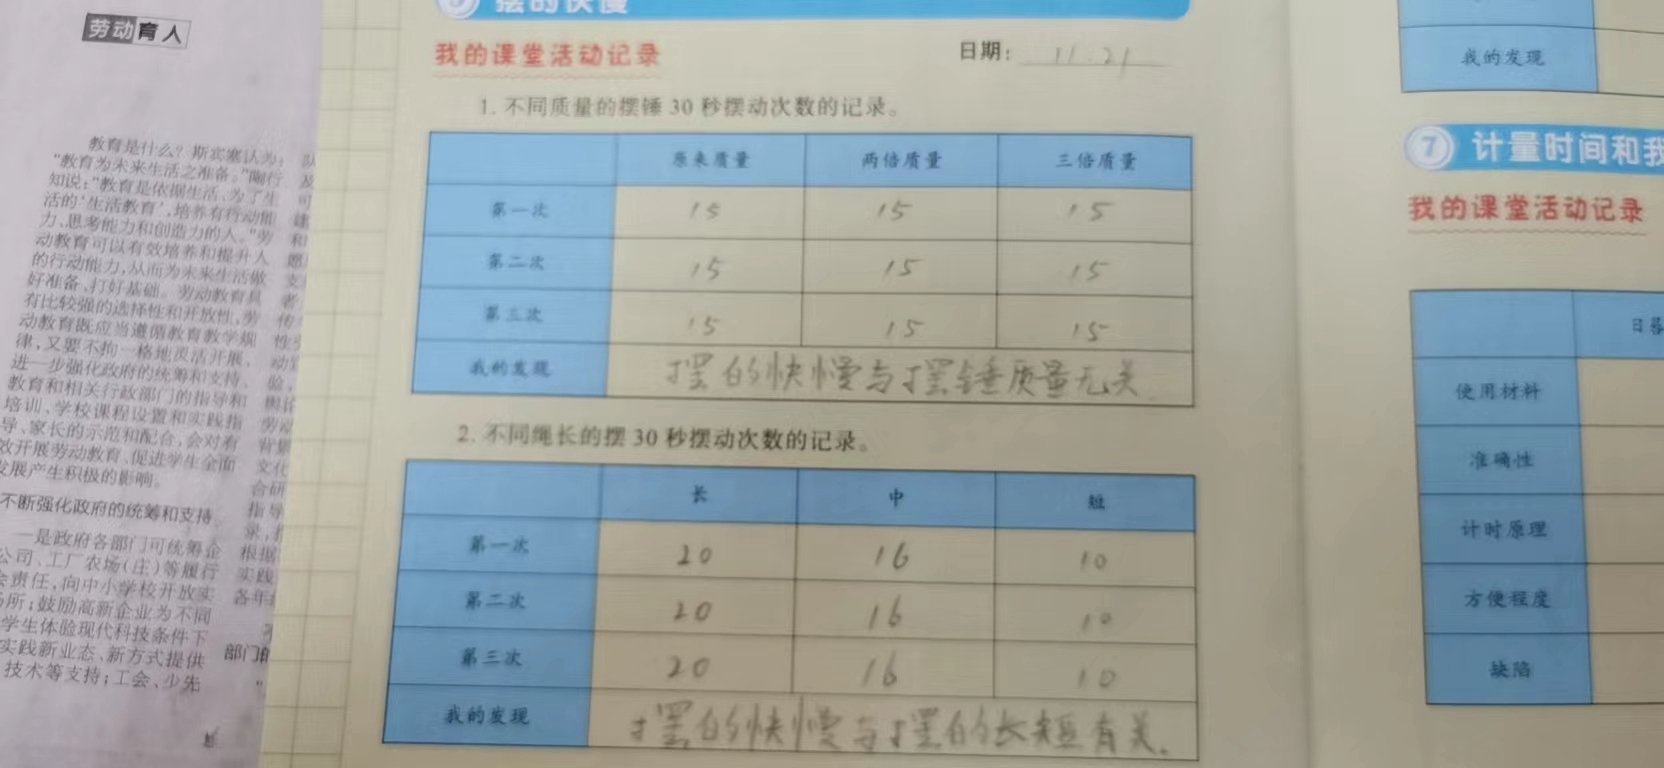 劳动育人
教育是什么？斯宾塞认为：
“教育为未来生活之准备。”陶行
知说：“教育是依据生活、为了生
活的‘生活教育’，培养有行动能
力、思考能力和创造力的人。”劳
动教育可以有效培养和提升人
的行动能力，从而为未来生活做
好准备、打好基础。劳动教育具
有比较强的选择性和开放性，劳
动教育既应当遵循教育教学规
律，又要不拘一格地灵活开展，
进一步强化政府的统筹和支持、
教育和相关行政部门的指导和
培训、学校课程设置和实践指
导、家长的示范和配合，会对有
效开展劳动教育、促进学生全面
发展产生积极的影响。
不断强化政府的统筹和支持
一是政府各部门可统筹企
公司、工厂农场（庄）等履行
会责任，向中小学校开放实
场所；鼓励高新企业为不同
学生体验现代科技条件下
实践新业态、新方式提供
技术等支持；工会、少先
文化
合研
指导
根据
实践
各年
部门
5 摆的快慢
我的课堂活动记录
日期：11.21
1. 不同质量的摆锤 30 秒摆动次数的记录。
原来质量 两倍质量 三倍质量
第一次 15 15 15
第二次 15 15 15
第三次 15 15 15
我的发现 摆的快慢与摆锤质量无关
2. 不同绳长的摆 30 秒摆动次数的记录。
长 中 短
第一次 20 16 10
第二次 20 16 10
第三次 20 16 10
我的发现 摆的快慢与摆的长短有关。
我的发现
7 计量时间和我
我的课堂活动记录
日晷
使用材料
准确性
计时原理
方便程度
缺陷